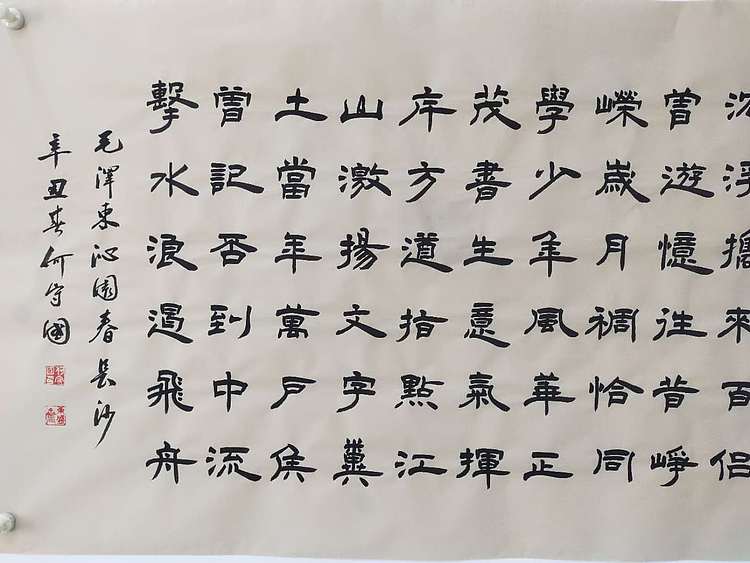 沉浮攜來百侶
曾遊憶往昔崢
嶸歲月稠恰同
學少年風華正
茂書生意氣揮
斥方遒指點江
山激揚文字糞
土當年萬戶侯
曾記否到中流
擊水浪遏飛舟
毛澤東沁園春長沙
辛丑春何守國